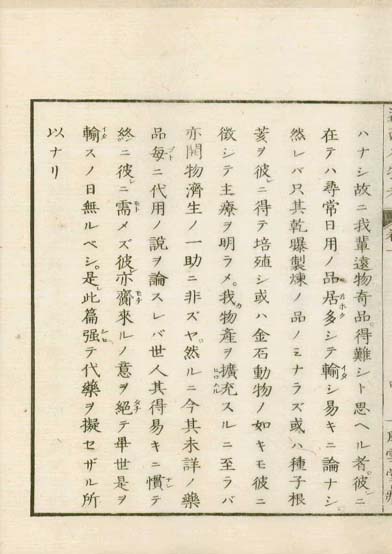 ハナシ故ニ我輩遠物奇品得難シト思ヘル者彼ニ
在テハ尋常日用ノ品居多シテ輸シ易キニ論ナシ
然レバ只其乾曝製煉ノ品ノミナラズ或ハ種子根
荄ヲ彼ニ得テ培殖シ或ハ金石動物ノ如キモ彼ニ
徴シテ主療ヲ明ラメ我物產ヲ擴充スルニ至ラバ
亦開物濟生ノ一助ニ非ズヤ然ルニ今其未詳ノ藥
品每ニ代用ノ說ヲ論スレバ世人其得易キニ慣テ
終ニ彼ニ需メズ彼亦齎來ルノ意ヲ絕テ畢世是ヲ
輸スノ日無ルベシ是此篇强テ代藥ヲ擬セザル所
以ナリ